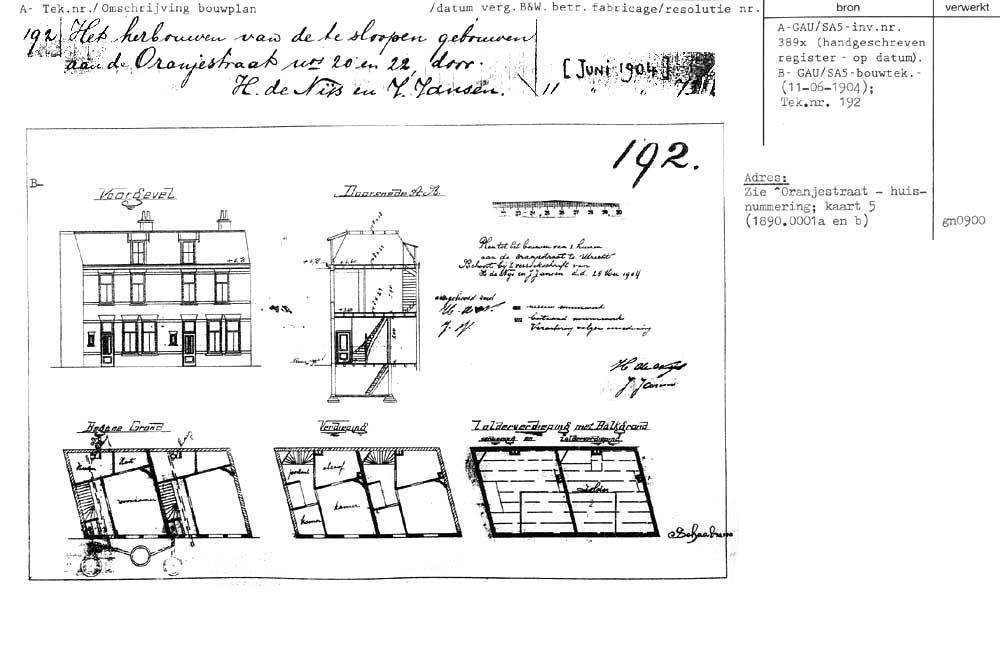 A- Tek.nr./Omschrijving bouwplan /datum verg.B&W.betr.fabricage/resolutie nr.
bron
verwerkt
192 Het herbouwen van de te sloopen gebouwen
aan de Oranjestraat nos 20 en 22, door
H. de Nijs en J. Jansen.
[JUNI 1904]
A-GAU/SA5-inv.nr.
389x (handgeschreven
register - op datum).
B- GAU/SA5-bouwtek.-
(11-06-1904);
Tek.nr. 192
Adres:
Zie ^Oranjestraat - huis-
nummering; kaart 5
(1890.0001a en b)
gn0900
B-
192.
Voorgevel
Doorsnede A-B.
Plan tot het bouwen van 2 huizen
aan de Oranjestraat te Utrecht
H de Nijs en J Jansen d.d. 1904
H de Nijs
J Jansen
Begane Grond
Verdieping
Zolderverdieping met Balkgrond
zolderverdieping
keuken
voorkamer
portaal
alcoof
kamer
kamer
Zolder